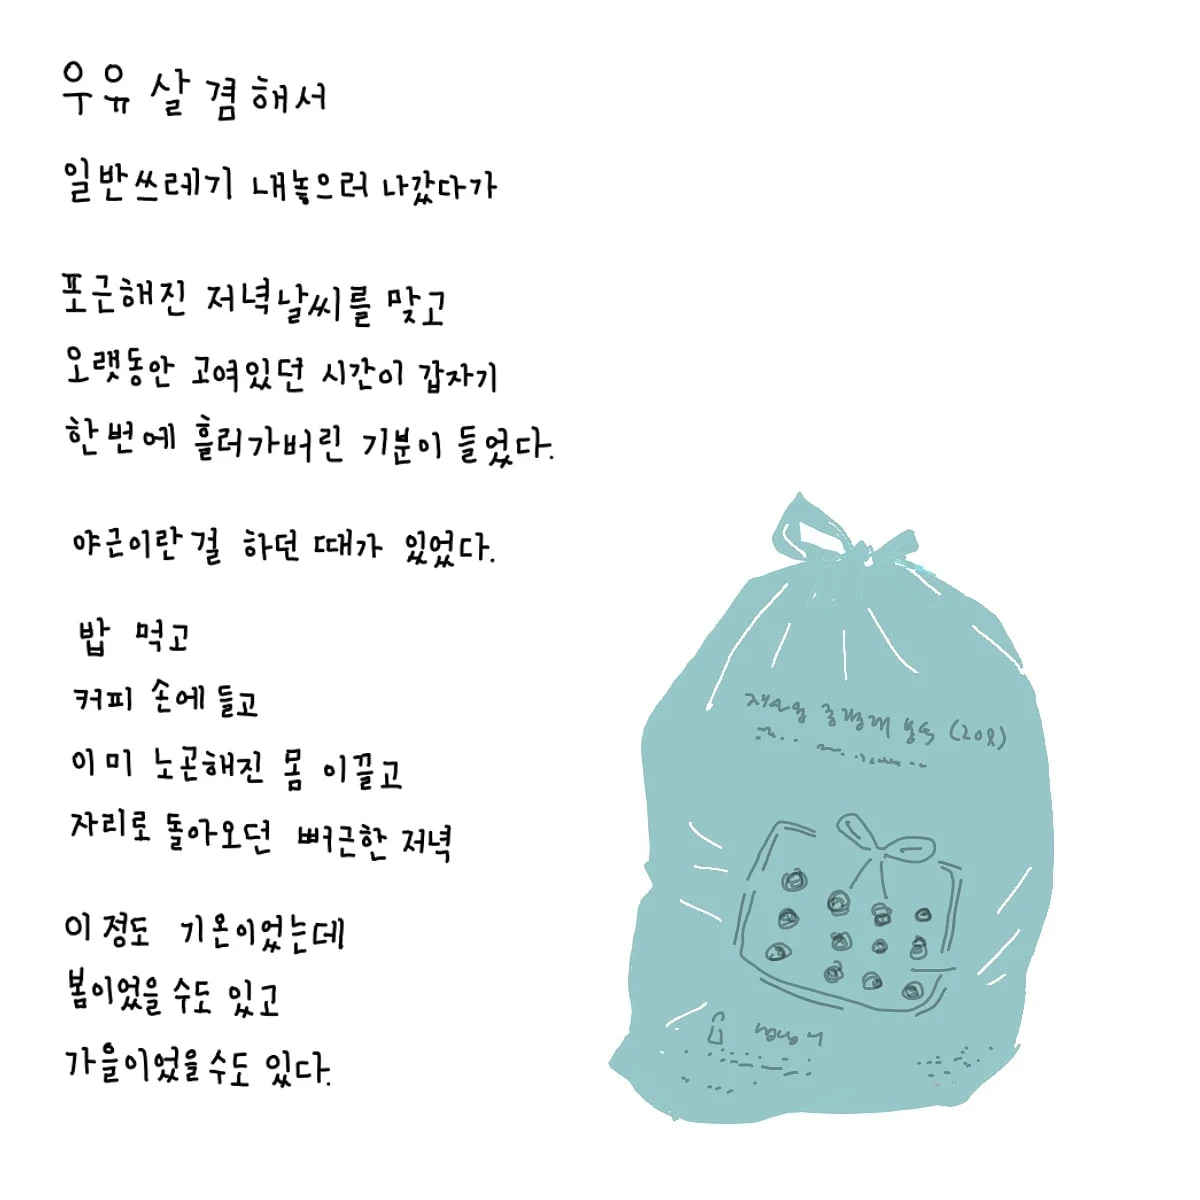 우유 살 겸 해서
일반쓰레기 내놓으러 나갔다가
포근해진 저녁날씨를 맞고
오랫동안 고여있던 시간이 갑자기
한번에 흘러가버린 기분이 들었다.
야근이란 걸 하던 때가 있었다.
밥 먹고
커피 손에 들고
이미 노곤해진 몸 이끌고
자리로 돌아오던 뻐근한 저녁
이 정도 기온이었는데
봄이었을 수도 있고
가을이었을 수도 있다.
재사용 종량제 봉투 (20ℓ)